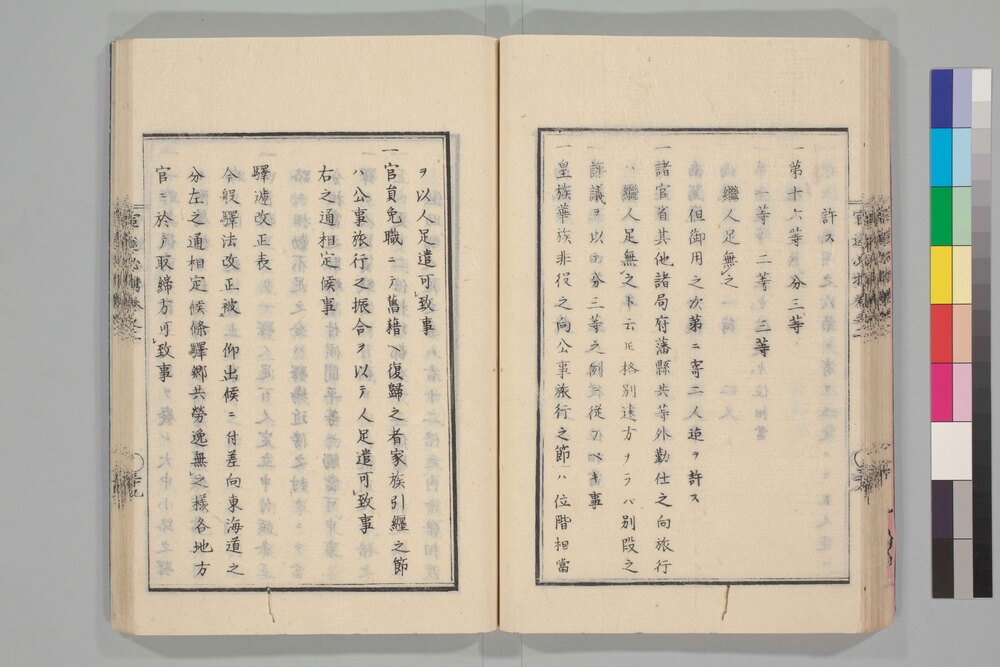 許ス
一第十六等　分三等
第一等　二等　三等
繼人足無之
但御用之次第ニ寄二人迠ヲ許ス
一諸官省其他諸局府藩縣共等外勤仕之向旅行
ハ繼人足無之ト云ㇳモ格別遠方ヲラバ別段之
評議ヲ以テ分三等之例從フベキ事
一皇族華族非役之向公事旅行之節ハ位階相當
ヲ以人足遣可致事
一官員免職ニテ舊籍ヘ復歸之者家族引纒之節
ハ公事旅行之振合ヲ以テ人足遣可致事
右之通相定候事
驛逓改正表
今般驛法改正被仰出候ニ付差向東海道之
分左之通相定候條驛郷共勞逸無之様各地方
官ニ於テ取締方可致事